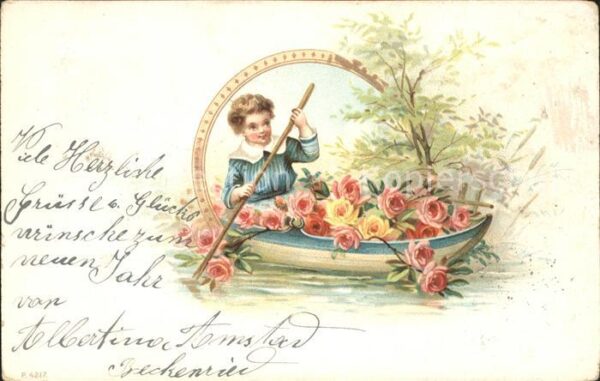 Viele Herzliche
Grüsse u. Glücks
wünsche zum
neuen Jahr
von
Albertina Amstad
Beckenried
P. 4217